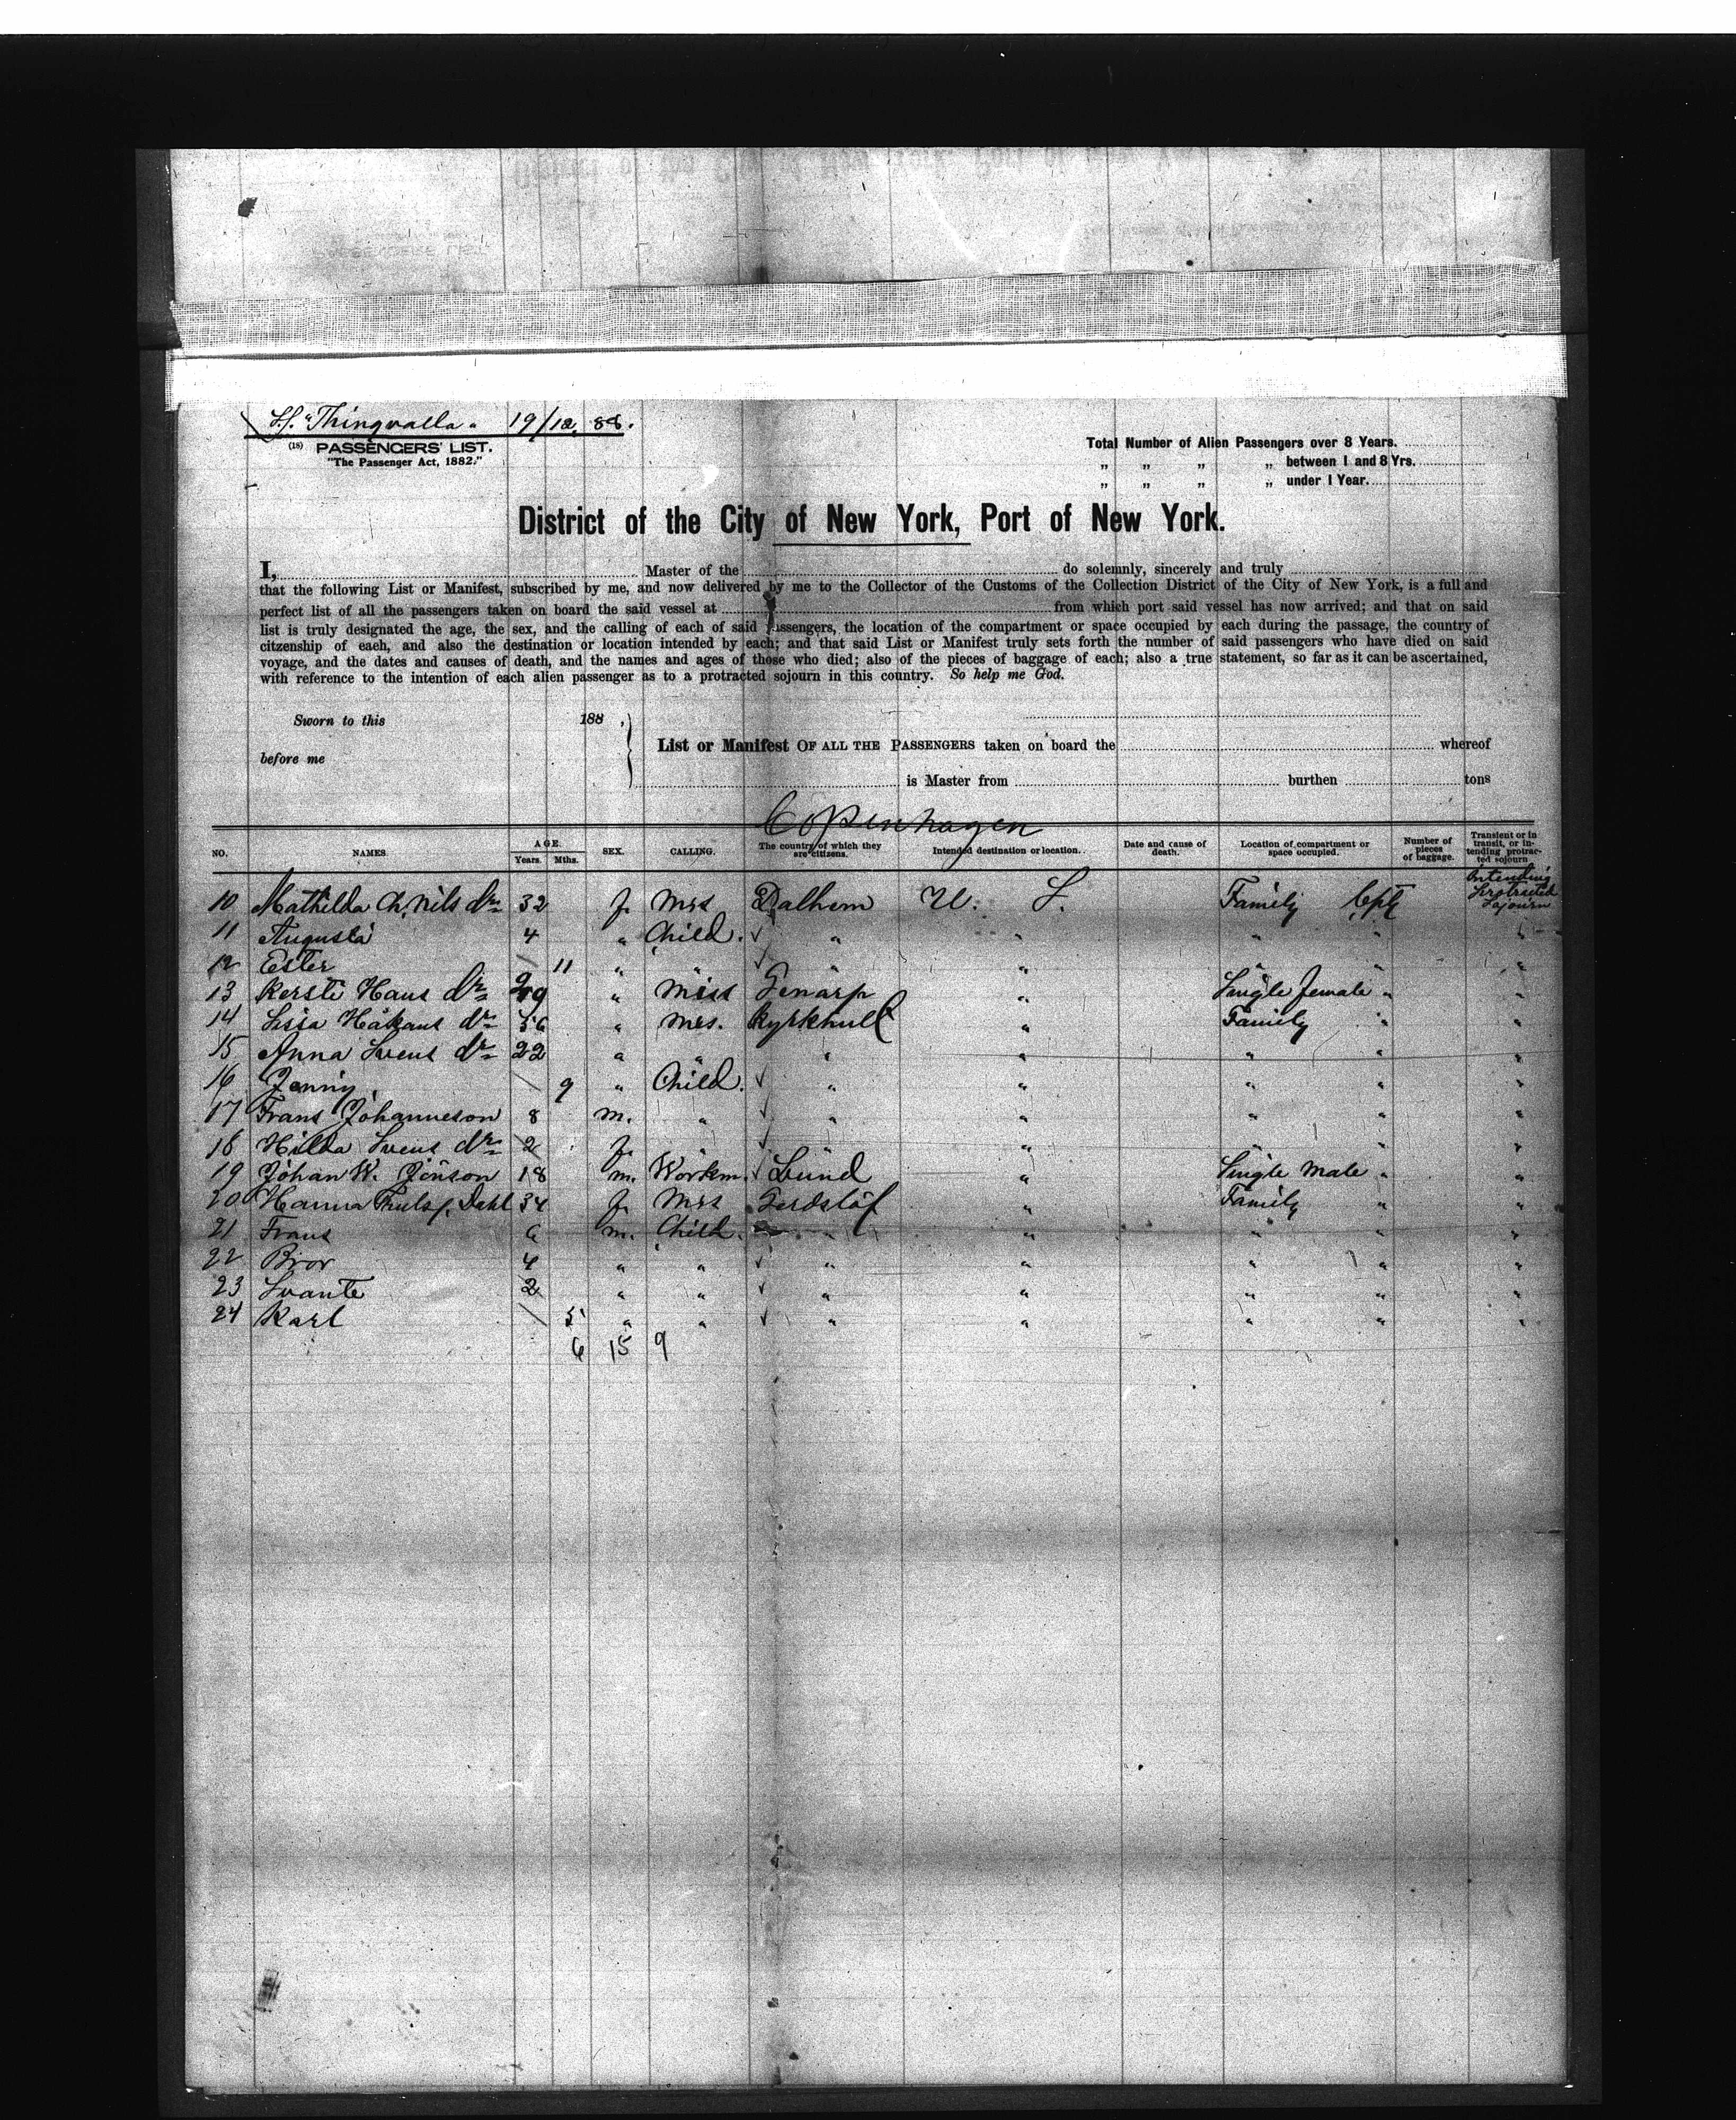 S.S. "Thingvalla" 19/12. 88.
(18) PASSENGERS' LIST.
"The Passenger Act, 1882."
Total Number of Alien Passengers over 8 Years.
„ „ „ „ between 1 and 8 Yrs.
„ „ „ „ under 1 Year.
District of the City of New York, Port of New York.
I, Master of the do solemnly, sincerely and truly
that the following List or Manifest, subscribed by me, and now delivered by me to the Collector of the Customs of the Collection District of the City of New York, is a full and
perfect list of all the passengers taken on board the said vessel at from which port said vessel has now arrived; and that on said
list is truly designated the age, the sex, and the calling of each of said passengers, the location of the compartment or space occupied by each during the passage, the country of
citzenship of each, and also the destination or location intended by each; and that said List or Manifest truly sets forth the number of said passengers who have died on said
voyage, and the dates and causes of death, and the names and ages of those who died; also of the pieces of baggage of each; also a true statement, so far as it can be ascertained,
with reference to the intention of each alien passenger as to a protracted sojourn in this country. So help me God.
Sworn to this 188 ,
before me
List or Manifest OF ALL THE PASSENGERS taken on board the whereof
is Master from burthen tons
Copenhagen
NO. NAMES. AGE. Years. Mths. SEX. CALLING. The country of which they are citizens. Intended destination or location. Date and cause of death. Location of compartment or space occupied. Number of pieces of baggage. Transient or in transit, or intending protracted sojourn
10 Mathilda Ch. Nils dr 32 f. Mrs Dalhem U. S. Family Cpt Intending Protracted Sojourn
11 Augusta 4 " Child. " " " " "
12 Ester 11 " " " " " " "
13 Kersti Hans dr 29 " Miss Genarp " Single female " "
14 Sisa Håkans dr 56 " Mrs. Kyrkhult " Family " "
15 Anna Svens dr 22 " " " " " " "
16 Jenny 9 " Child. " " " " "
17 Frans Johanneson 8 m. " " " " " "
18 Hilda Svens dr 2 f. " " " "
19 Johan W. Jönson 18 m. Workm. Lund " Single male " "
20 Hanna Truls f. Dahl 34 f. Mrs Gerdslöf " Family " "
21 Frans 6 m. Child. " " " " "
22 Bror 4 " " " " " " "
23 Svante 2 " " " " " " "
24 Karl 5 " " " " " " "
6 15 9